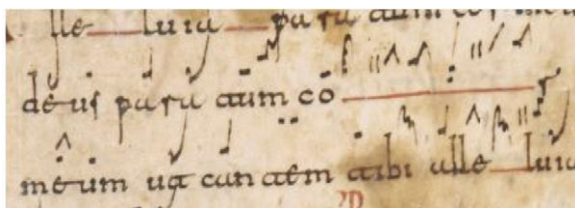 lle luia paratum cor meu
deus paratum co r
meum ut cantem tibi alle luia